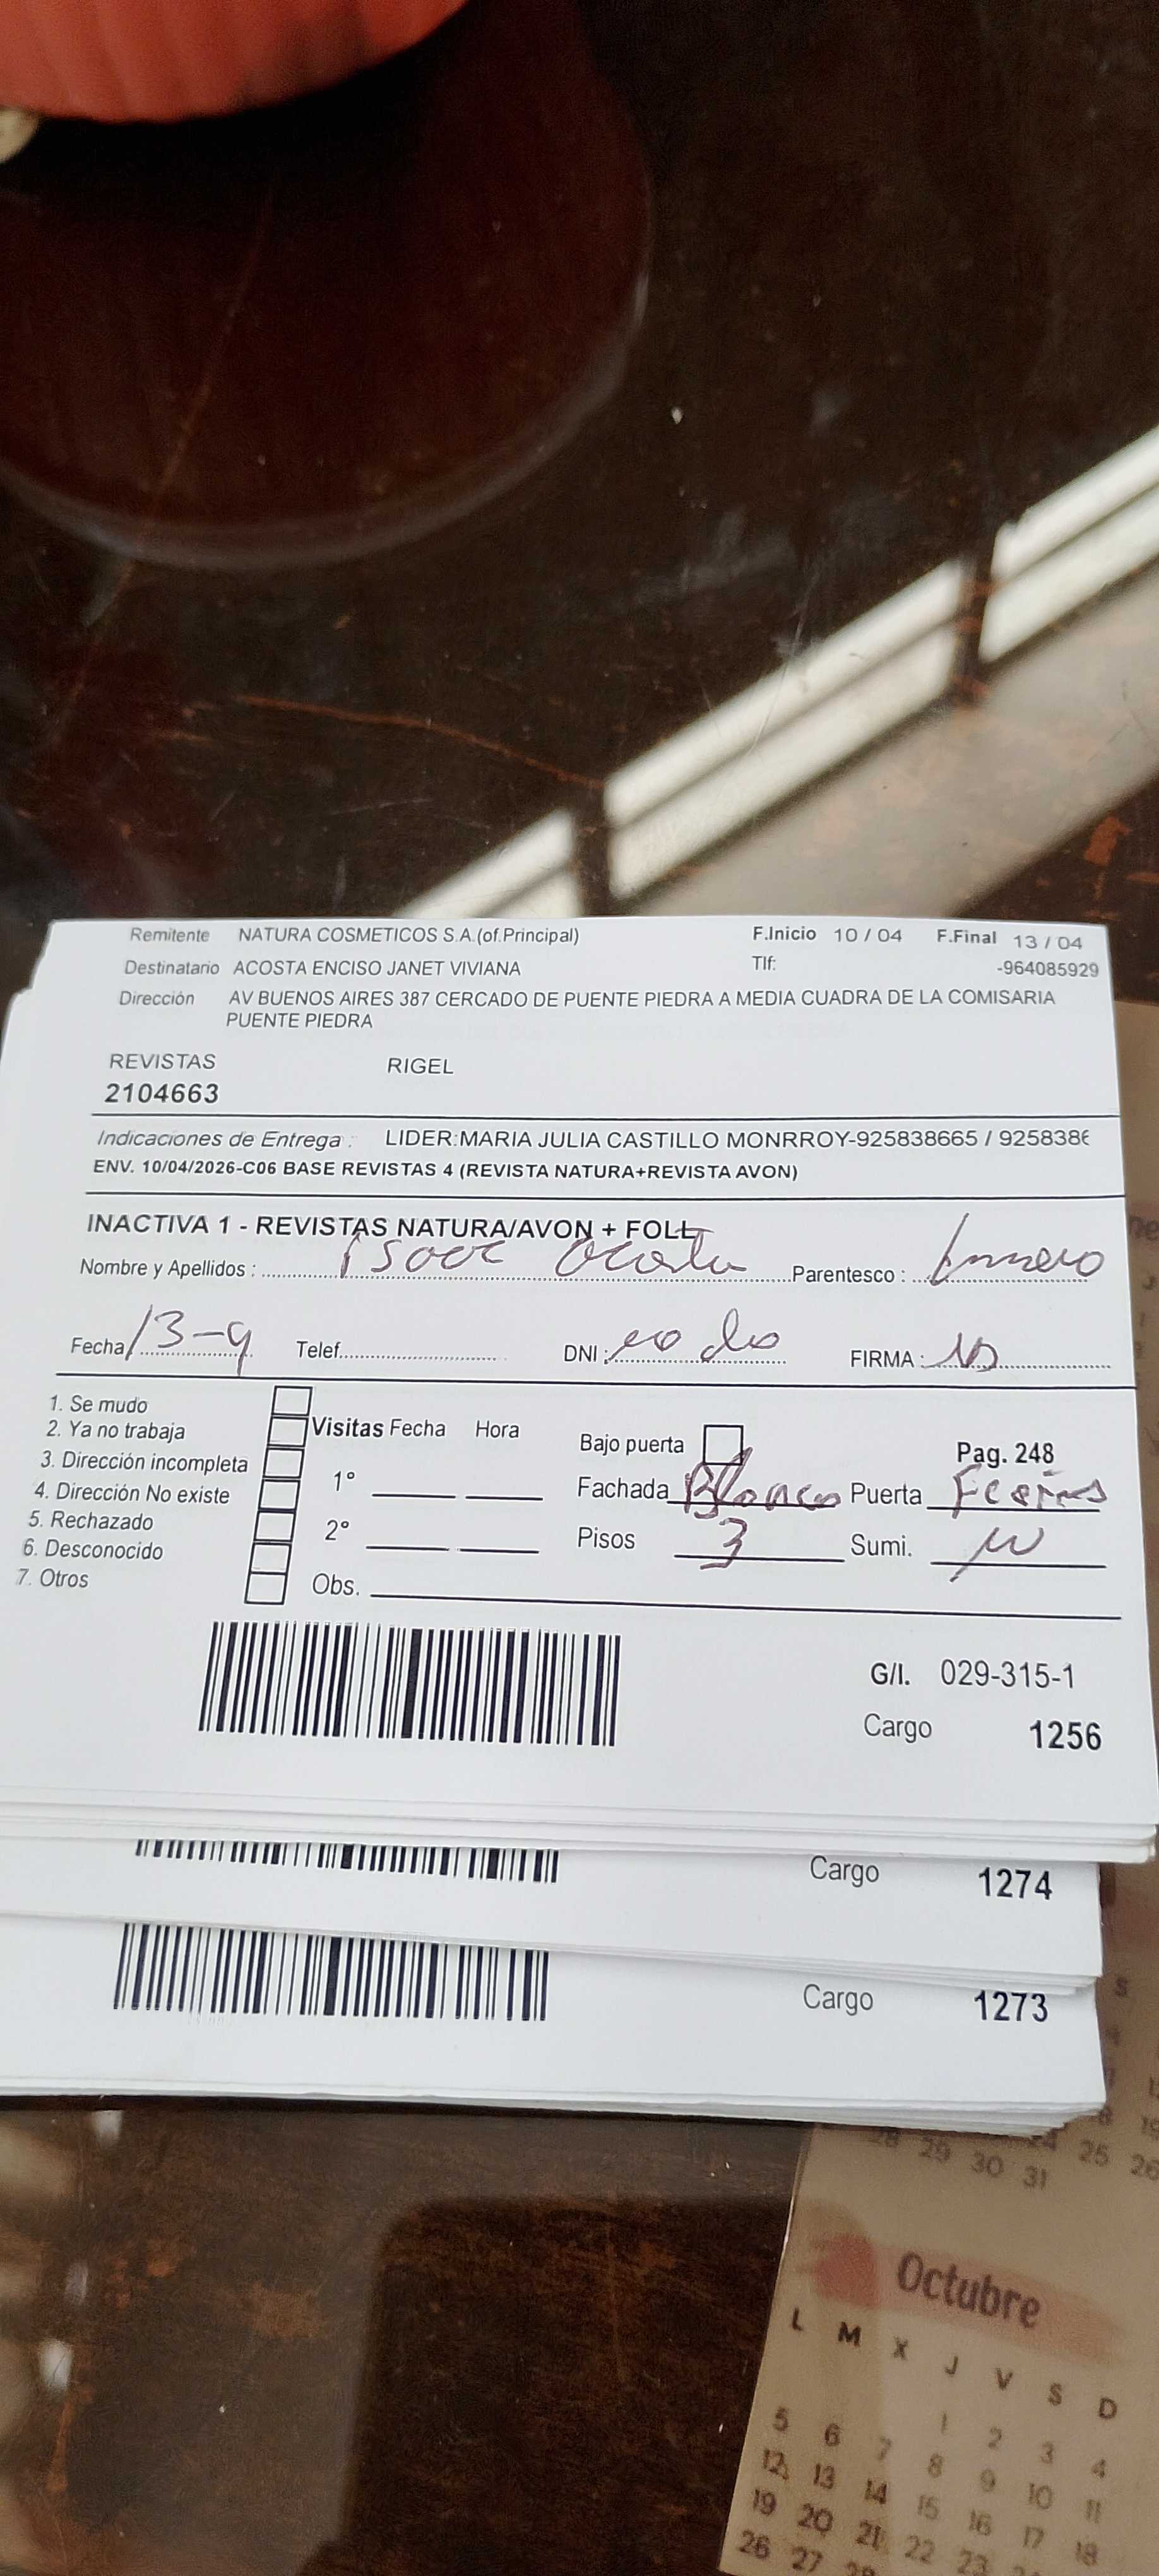 Remitente NATURA COSMETICOS S.A.(of.Principal) F.Inicio 10 / 04 F.Final 13 / 04
Destinatario ACOSTA ENCISO JANET VIVIANA Tlf: -964085929
Dirección AV BUENOS AIRES 387 CERCADO DE PUENTE PIEDRA A MEDIA CUADRA DE LA COMISARIA
PUENTE PIEDRA
REVISTAS RIGEL
2104663
Indicaciones de Entrega : LIDER:MARIA JULIA CASTILLO MONRROY-925838665 / 9258386
ENV. 10/04/2026-C06 BASE REVISTAS 4 (REVISTA NATURA+REVISTA AVON)
INACTIVA 1 - REVISTAS NATURA/AVON + FOLL
Nombre y Apellidos : Parentesco :
Fecha 13-4 Telef. DNI : FIRMA :
1. Se mudo
2. Ya no trabaja
3. Dirección incompleta
4. Dirección No existe
5. Rechazado
6. Desconocido
7. Otros
Visitas Fecha Hora
1°
2°
Obs.
Bajo puerta Pag. 248
Fachada Blanco Puerta
Pisos 3 Sumi.
G/I. 029-315-1
Cargo 1256
Cargo 1274
Cargo 1273
28 29 30 31 24 25 26
Octubre
L M X J V S D
1 2 3 4
5 6 7 8 9 10 11
12 13 14 15 16 17 18
19 20 21 22 23
26 27 28